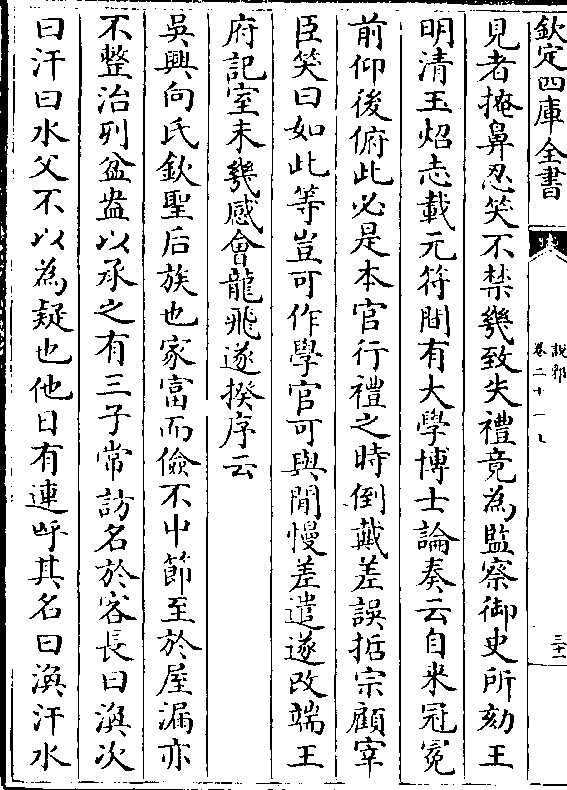 欽定四庫全書
說郛
卷二十一上
三十一
見者掩鼻忍笑不禁幾致失禮竟為監察御史所劾王
明清玉炤志載元符間有大學博士論奏云自来冠冕
前仰後俯此必是本官行禮之時倒戴差誤括宗顧宰
臣笑曰如此等豈可作學官可與閒慢差遣遂改端王
府記室未幾感會龍飛遂揆序云
吳興向氏欽聖后族也家富而儉不中節至於屋漏亦
不整治列盆盎以承之有三子常訪名於客長曰渙次
曰汗曰水父不以為疑也他日有連呼其名曰渙汗水